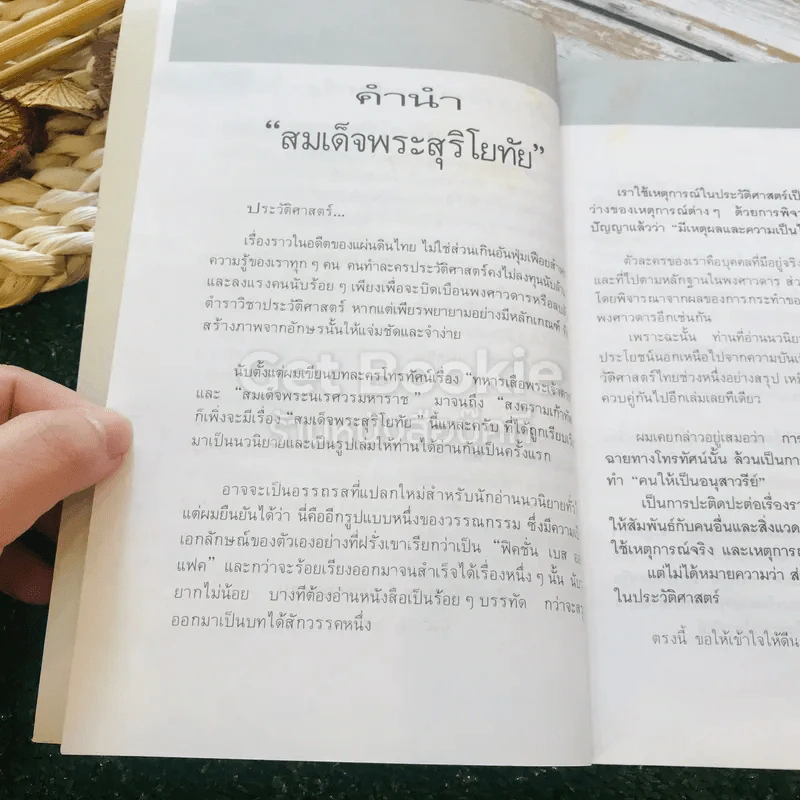 คำนำ
“สมเด็จพระสุริโยทัย”
ประวัติศาสตร์...
เรื่องราวในอดีตของแผ่นดินไทย ไม่ใช่ส่วนเกินอันฟุ่มเฟือยสำหรับ
ความรู้ของเราทุก ๆ คน คนทำละครประวัติศาสตร์คงไม่ลงทุนนับล้าน
และลงแรงคนนับร้อย ๆ เพียงเพื่อจะบิดเบือนพงศาวดารหรือ
ตำราวิชาประวัติศาสตร์ หากแต่เพียรพยายามอย่างมีหลักเกณฑ์
สร้างภาพจากอักษรนั้นให้แจ่มชัดและจำง่าย
นับตั้งแต่ผมเขียนบทละครโทรทัศน์เรื่อง “ทหารเสือพระเจ้าตาก”
และ “สมเด็จพระนเรศวรมหาราช” มาจนถึง “สงครามเก้าทัพ”
ก็เพิ่งจะมีเรื่อง “สมเด็จพระสุริโยทัย” นี่แหละครับ ที่ได้ถูกเรียบเรียง
มาเป็นนวนิยายและเป็นรูปเล่มให้ท่านได้อ่านกันเป็นครั้งแรก
อาจจะเป็นอรรถรสที่แปลกใหม่สำหรับนักอ่านนวนิยายทั่วไป
แต่ผมยืนยันได้ว่า นี่คืออีกรูปแบบหนึ่งของวรรณกรรม ซึ่งมีความเป็น
เอกลักษณ์ของตัวเองอย่างที่ฝรั่งเขาเรียกว่าเป็น “ฟิคชั่น เบส ออน
แฟค” และกว่าจะร้อยเรียงออกมาจนสำเร็จได้เรื่องหนึ่ง ๆ นั้น นับว่า
ยากไม่น้อย บางทีต้องอ่านหนังสือเป็นร้อย ๆ บรรทัด กว่าจะ
ออกมาเป็นบทได้สักวรรคหนึ่ง
เราใช้เหตุการณ์ในประวัติศาสตร์เป็
ว่างของเหตุการณ์ต่าง ๆ ด้วยการพิจา
ปัญญาแล้วว่า “มีเหตุผลและความเป็นไ
ตัวละครของเราคือบุคคลที่มีอยู่จริง
และที่ไปตามหลักฐานในพงศาวดาร ส่ว
โดยพิจารณาจากผลของการกระทำของ
พงศาวดารอีกเช่นกัน
เพราะฉะนั้น ท่านที่อ่านนวนิยา
ประโยชน์นอกเหนือไปจากความบันเ
วัติศาสตร์ไทยช่วงหนึ่งอย่างสรุป เหมื
ควบคู่กันไปอีกเล่มเลยทีเดียว
ผมเคยกล่าวอยู่เสมอว่า การ
ฉายทางโทรทัศน์นั้น ล้วนเป็นกา
ทำ “คนให้เป็นอนุสาวรีย์”
เป็นการปะติดปะต่อเรื่องรา
ให้สัมพันธ์กับคนอื่นและสิ่งแวด
ใช้เหตุการณ์จริง และเหตุการ
แต่ไม่ได้หมายความว่า ส่
ในประวัติศาสตร์
ตรงนี้ ขอให้เข้าใจให้ดีน
Get Bookie
ร้านหนังสือบุ๊คกี้